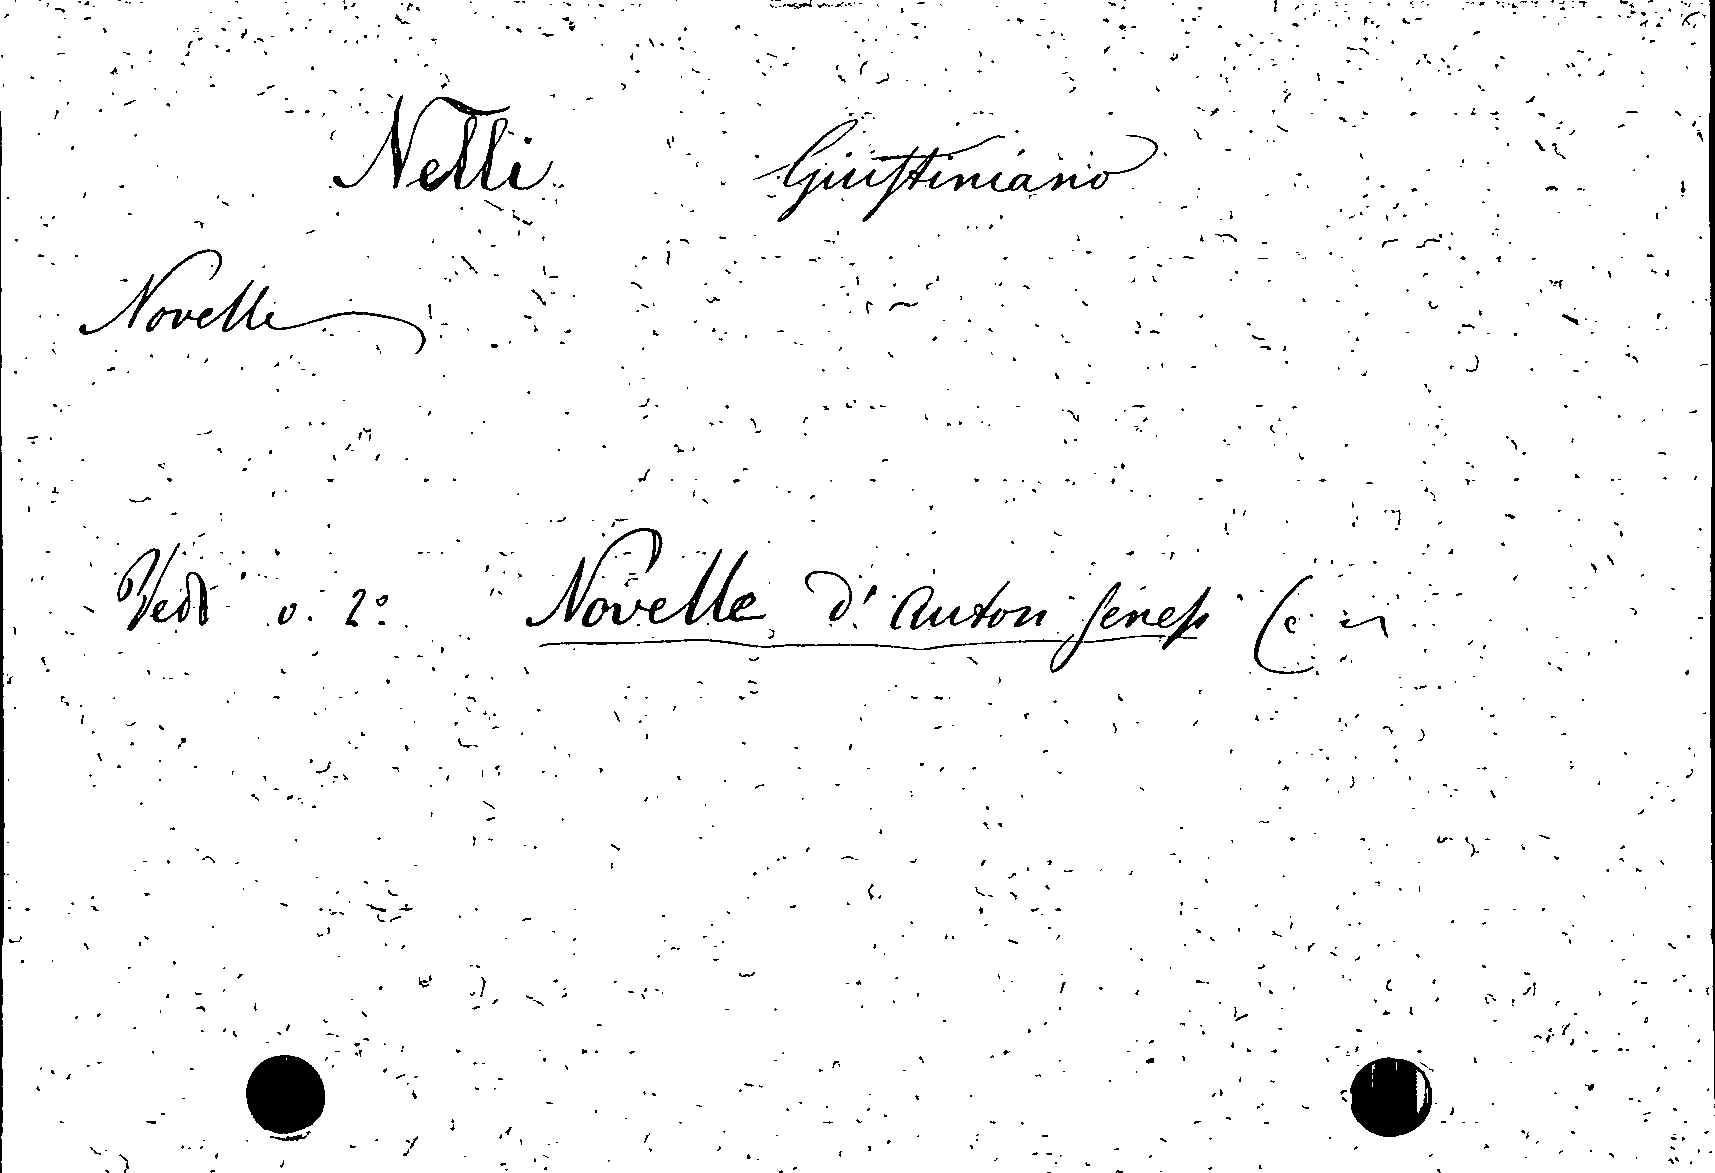 Nelli Giustiniano
Novelle
Vedi v. 2º Novelle d'autori senesi